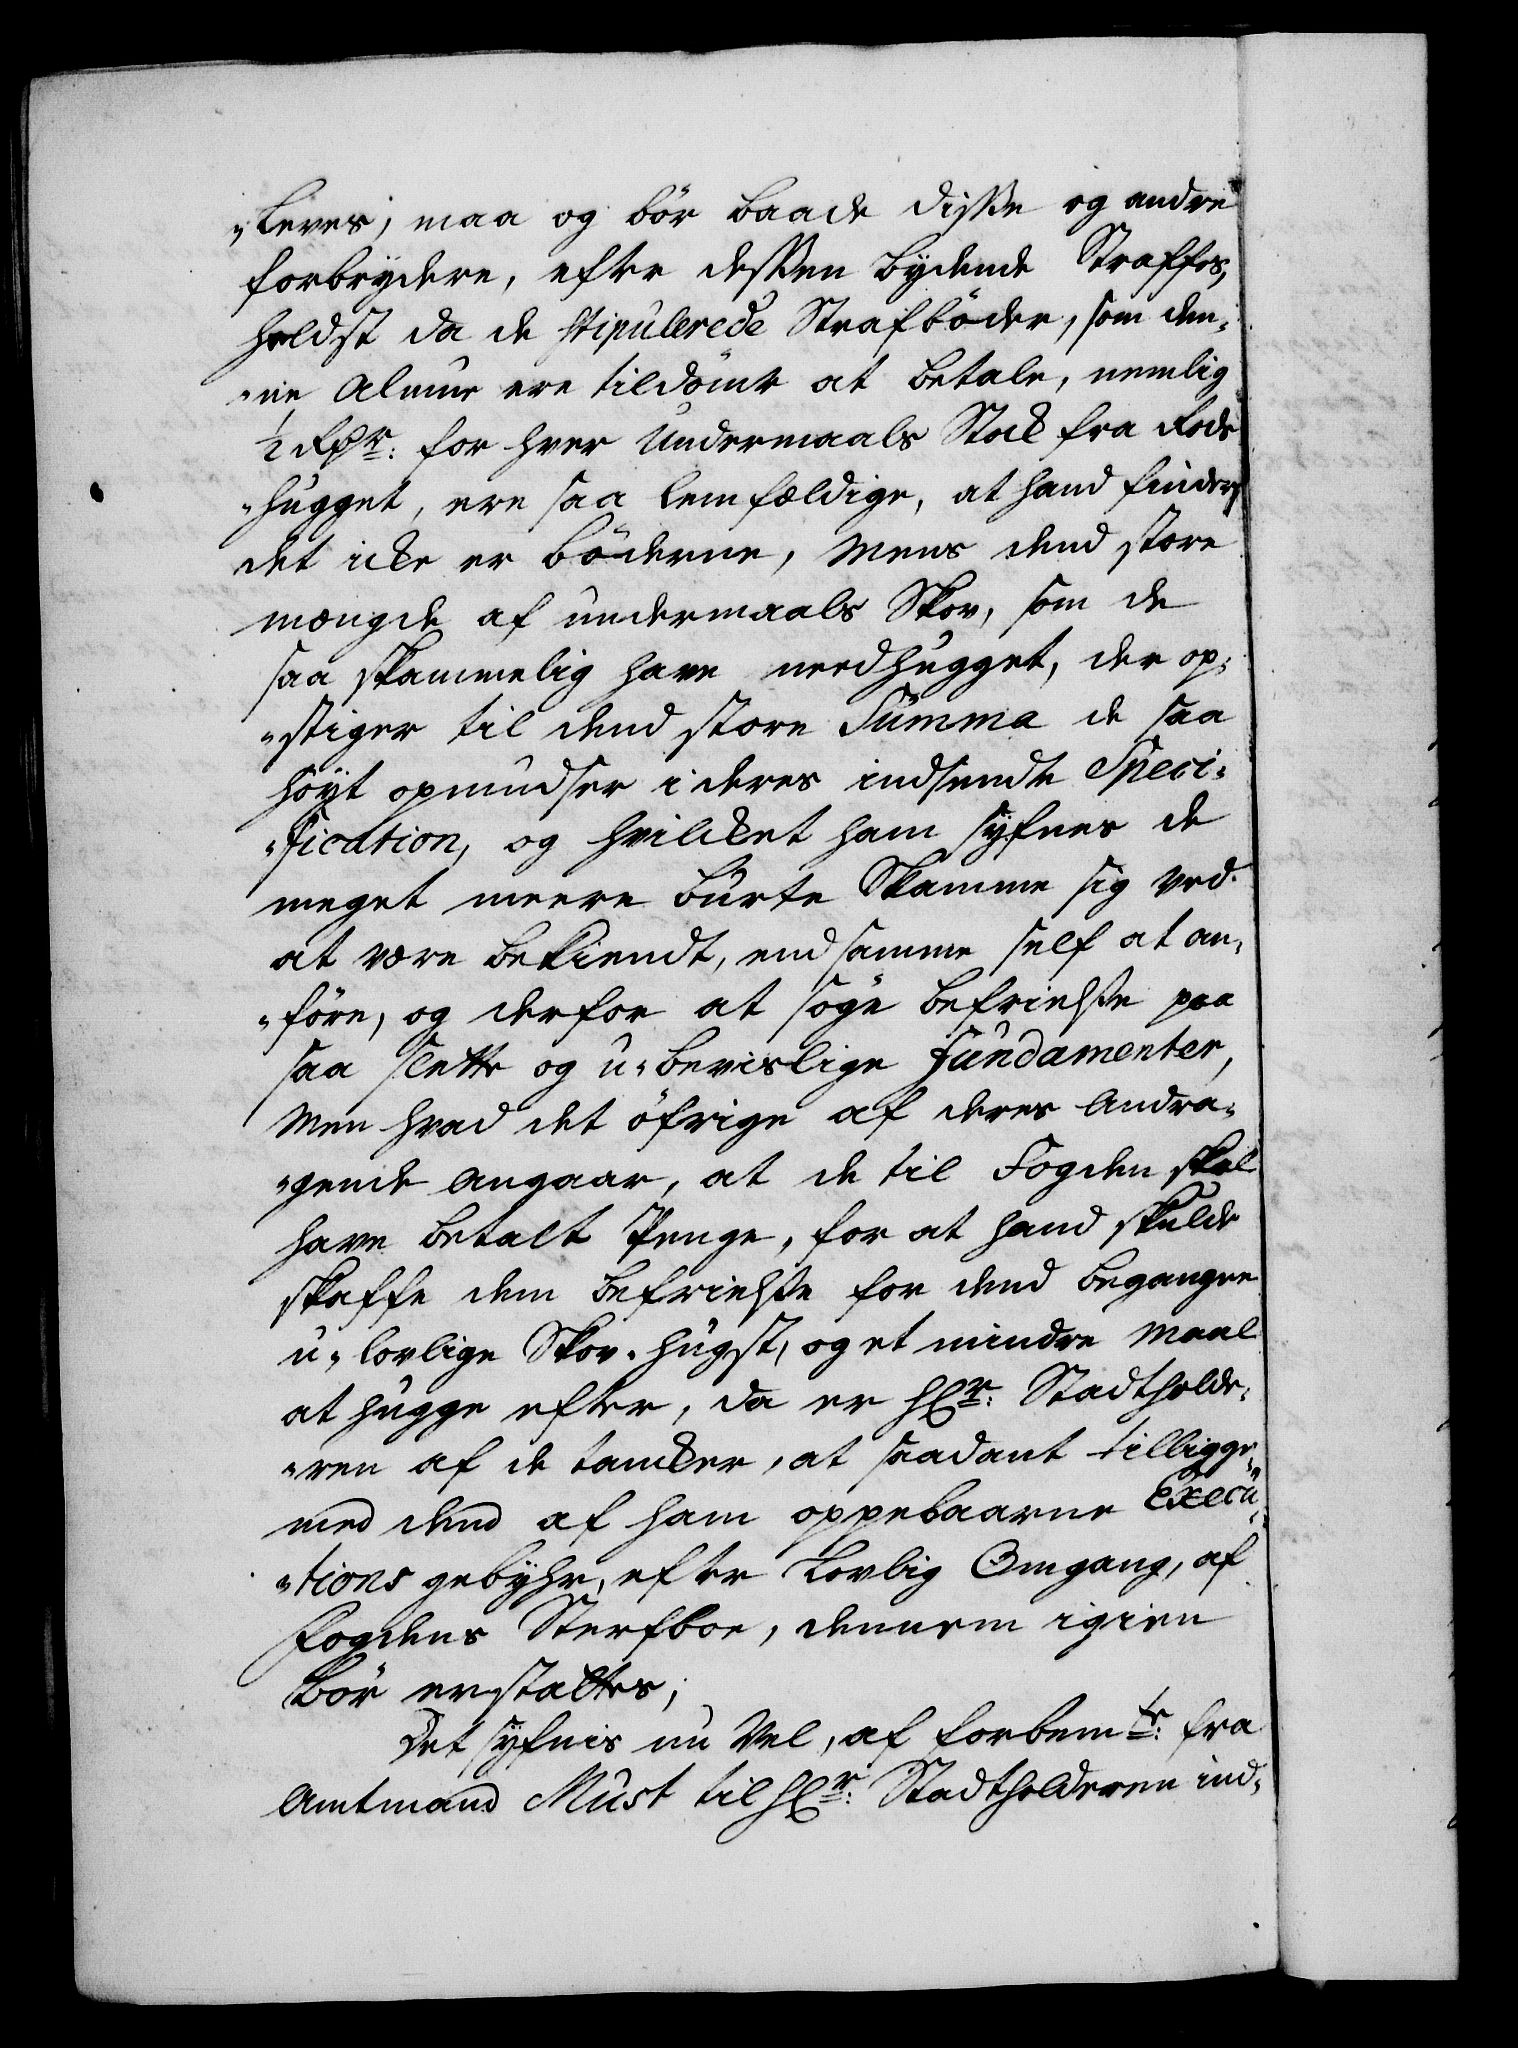 "leves, maa og bör baade disse og andre
forbrydere, efter dessen bydende Straffes,
heldst da de stipulerede Strafböder, som den„
„ne Almue ere tildömt at betale, nemlig
½ Rdr: for hver Undermaals Stok fra Rode
„hugget, ere saa lemfældige, at hand finder
det icke er böderne, mens dend store
mængde af undermaals Skov, som de
saa skammelig have needhugget, der op„
„stiger til dend store Summa de saa
höyt opmudser i deres indsendte Speci„
„fication, og hvilcket ham syfnes de
meget meere burte Skamme sig ved
at være bekiendt, end samme self at an„
„före, og derfor at söge befrielse paa
saa slette og u„bevislige Fundamenter,
Men hvad det öfrige af deres Andra„
„gende angaar, at de til Fogden skal
have betalt Penge, for at hand skulde
skaffe dem befrielse for dend begangne
u„lovlige Skov„hugst, og et mindre Maal
at hugge efter, da er Hr: Stadtholde„
„ren af de tancker, at saadant tilligge„
med dend af ham oppebaarne Execu„
„tions gebyhr, efter Lovlig Omgang, af
Fogdens Sterfboe, dennem igien
bör erstattes;
Det syfnis nu Vel, af forbemte: fra
Amtmand Must til Hr: Stadtholderen ind„